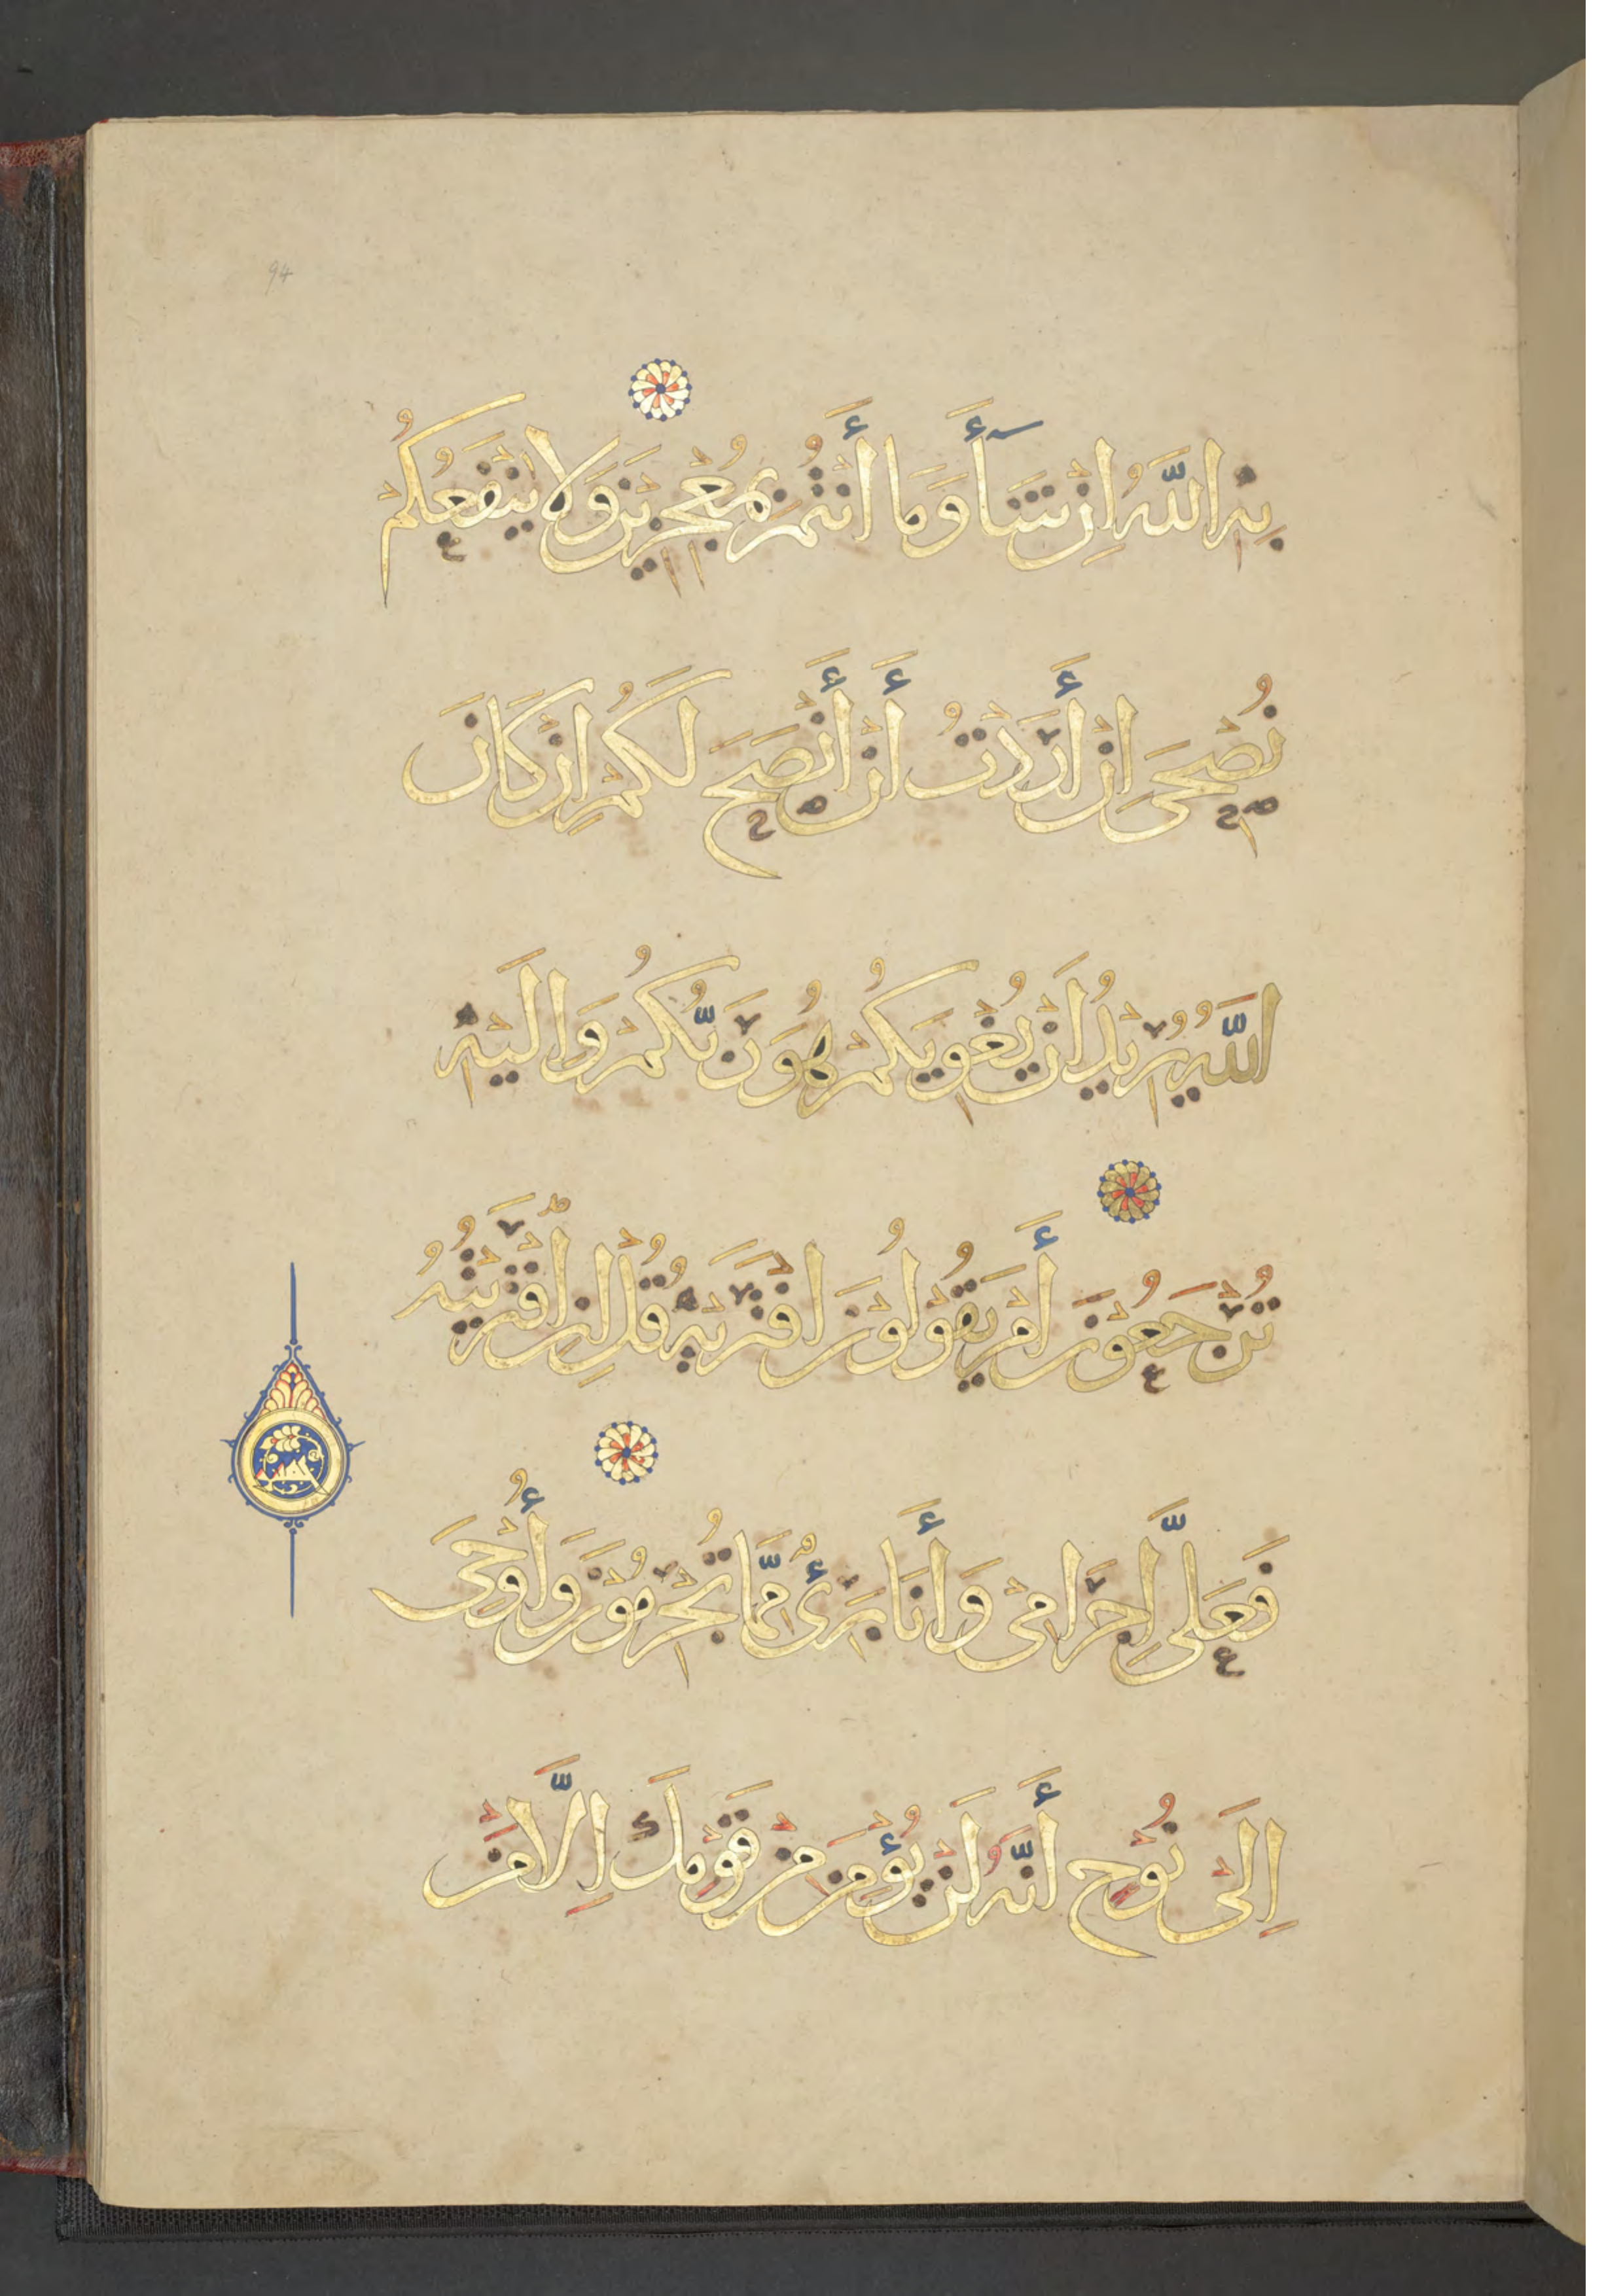 94
بِهِ اللَّهُ اِنْ شَآأَ وَمَا أَنْتُمْ بِمُعْجِزِيْنَ وَلَا يَنْفَعُكُمْ
نُصْحِىَ اِنْ أَرَدْتُ أَنْ أَنْصَحَ لَكُمْ اِنْ كَانَ
اللَّهُ يُرِيْدُ اَنْ يُغْوِيَكُمْ هُوَ رَبُّكُمْ وَاِلَيْهِ
تُرْجَعُوْنَ أَمْ يَقُوْلُوْنَ افْتَرَىهُ قُلْ اِنِ افْتَرَيْتُهُ
فَعَلَىَّ اِجْرَامِى وَأَنَا بَرِىءٌ مِّمَّا تُجْرِمُوْنَ وَأُوْحِىَ
اِلَى نُوْحٍ أَنَّهُ لَنْ يُؤْمِنَ مِنْ قَوْمِكَ اِلَّا مَنْ